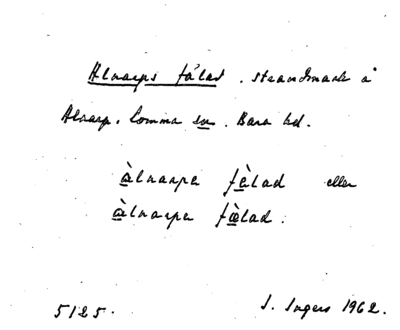 Alnarps fålad. strandmark å
Alnarp. Lomma sn. Bara hd.
àlnarpa fàlad eller
àlnarpa fœ̀lad.
5125. I. Ingers 1962.